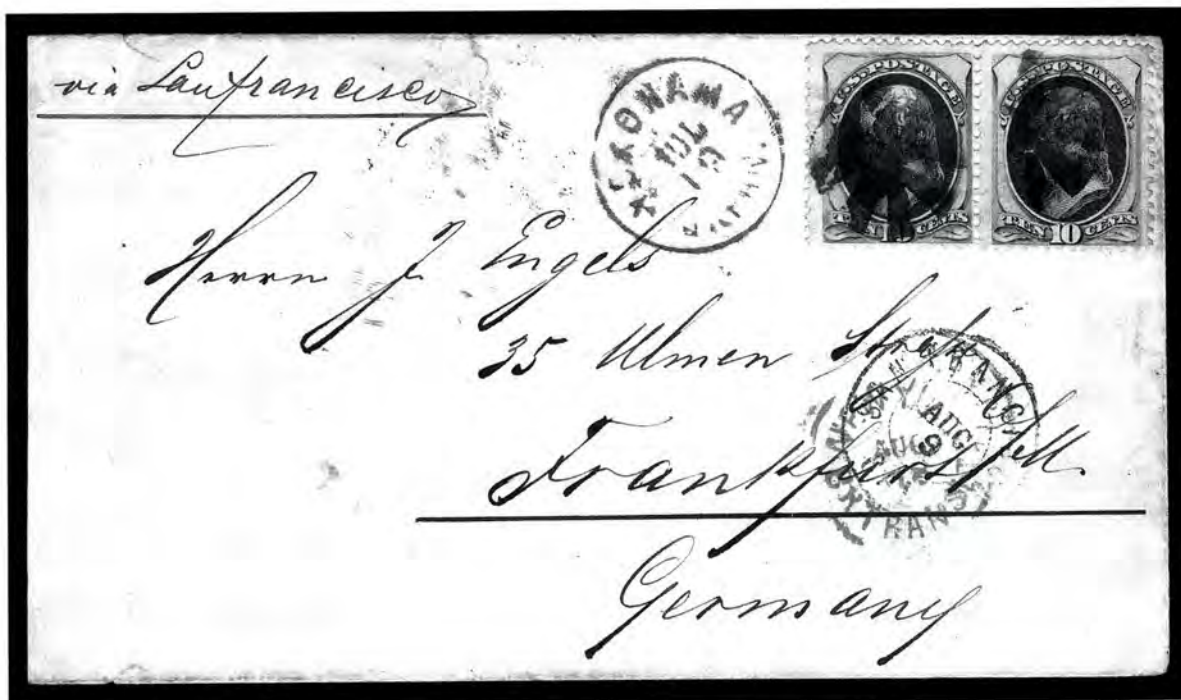 via San francisco
YOKOHAMA
JUL
JAPAN
U.S. POSTAGE
U.S. POSTAGE
TEN 10 CENTS
TEN 10 CENTS
Herrn J. Engels
35 Ulmen Straße
SAN FRANC
AUG
9
AUG
TRANSI
Frankfurt a/M.
Germany